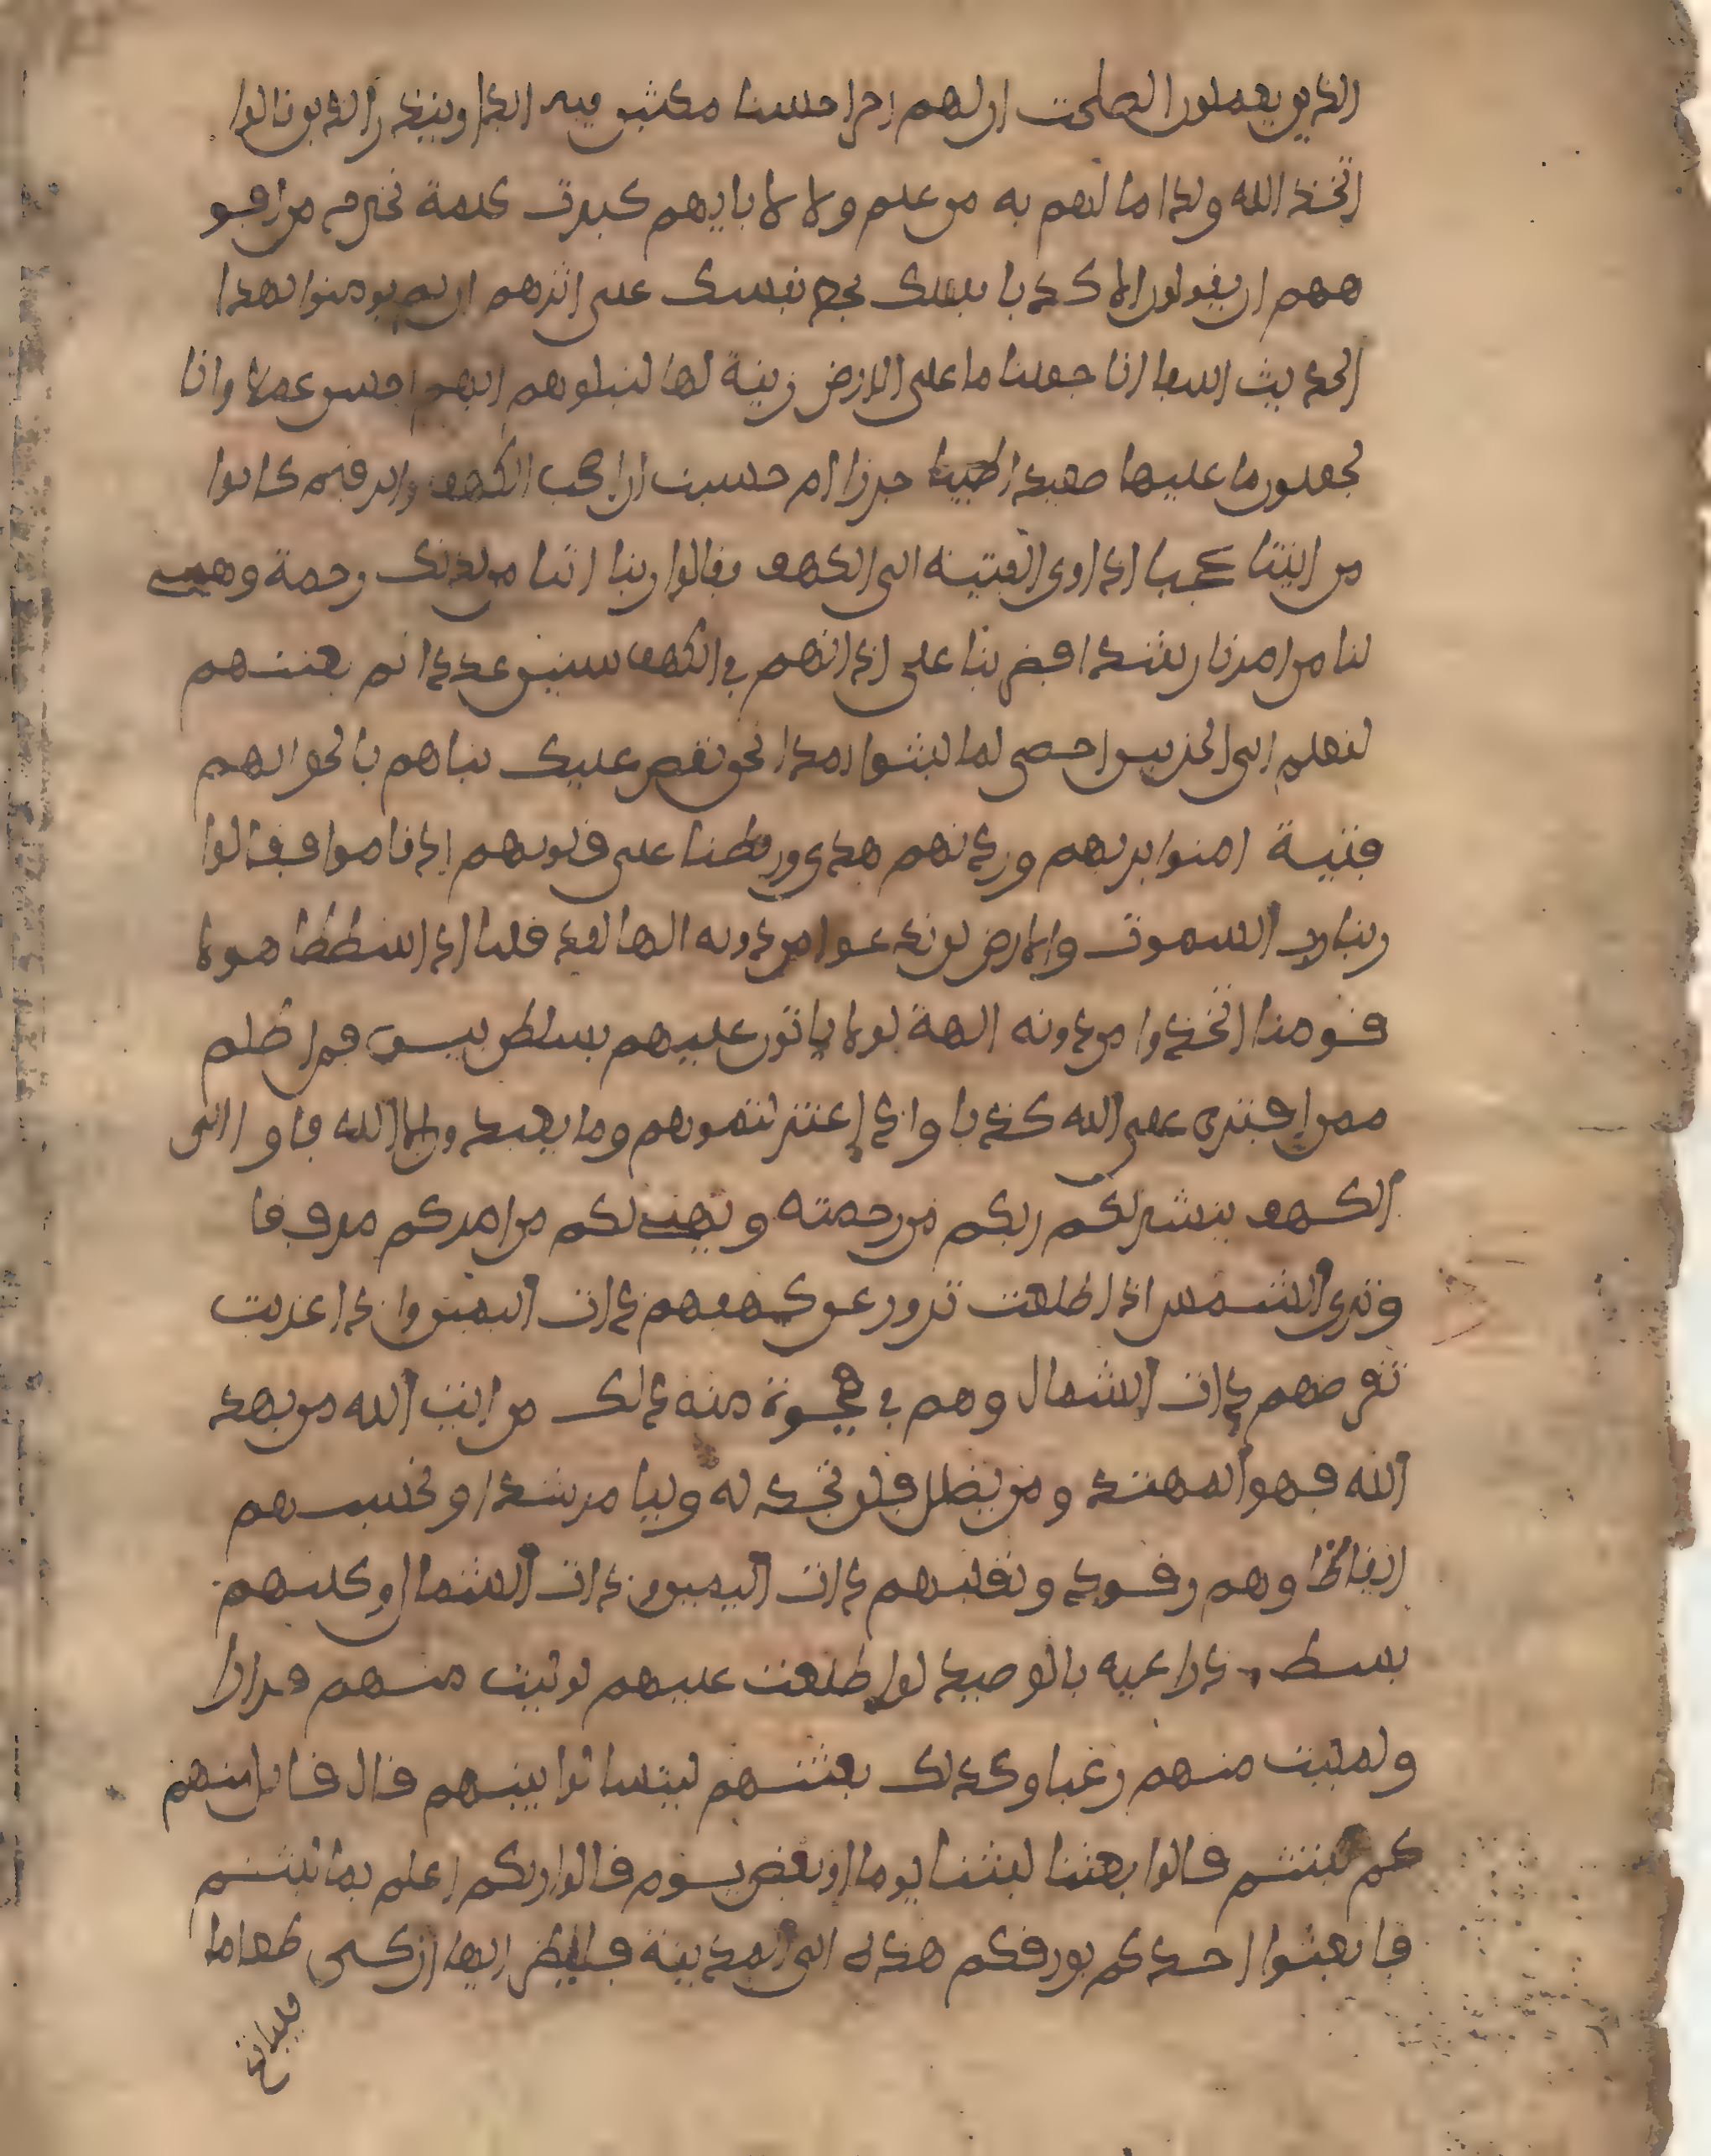 الذين يعملون الصلحت ان لهم اجرا حسنا مكثين فيه ابدا وينذر الذين قالوا
اتخذ الله ولدا ما لهم به من علم ولا لابايهم كبرت كلمة تخرج من افو
ههم ان يقولون الا كذبا فلعلك بخع نفسك على اثرهم ان لم يومنوا بهذا
الحديث اسفا انا جعلنا ما على الارض زينة لها لنبلوهم ايهم احسن عملا وانا
لجعلون ما عليها صعيدا جرزا ام حسبت ان اصحب الكهف والرقيم كانوا
من ايتنا عجبا اذ اوى الفتية الى الكهف فقالوا ربنا اتنا من لدنك رحمة وهيئ
لنا من امرنا رشدا فضربنا على اذانهم في الكهف سنين عددا ثم بعثنهم
لنعلم اى الحزبين احصى لما لبثوا امدا نحن نقص عليك نباهم بالحق انهم
فتية امنوا بربهم وزدنهم هدى وربطنا على قلوبهم اذ قاموا فقالوا
ربنا رب السموت والارض لن ندعوا من دونه الها لقد قلنا اذا شططا هولا
قومنا اتخذوا من دونه الهة لولا ياتون عليهم بسلطن بين فمن اظلم
ممن افترى على الله كذبا واذ اعتزلتموهم وما يعبدون الا الله فاوا الى
الكهف ينشر لكم ربكم من رحمته ويهيئ لكم من امركم مرفقا
وترى الشمس اذا طلعت تزور عن كهفهم ذات اليمين واذا غربت
تقرضهم ذات الشمال وهم في فجوة منه ذلك من ايت الله من يهد
الله فهو المهتد ومن يضلل فلن تجد له وليا مرشدا وتحسبهم
ايقاظا وهم رقود ونقلبهم ذات اليمين وذات الشمال وكلبهم
بسط ذراعيه بالوصيد لو اطلعت عليهم لوليت منهم فرارا
ولملئت منهم رعبا وكذلك بعثنهم ليتساءلوا بينهم قال قايل منهم
كم لبثتم قالوا لبثنا يوما او بعض يوم قالوا ربكم اعلم بما لبثتم
فابعثوا احدكم بورقكم هذه الى المدينة فلينظر ايها ازكى طعاما
فلياتكم